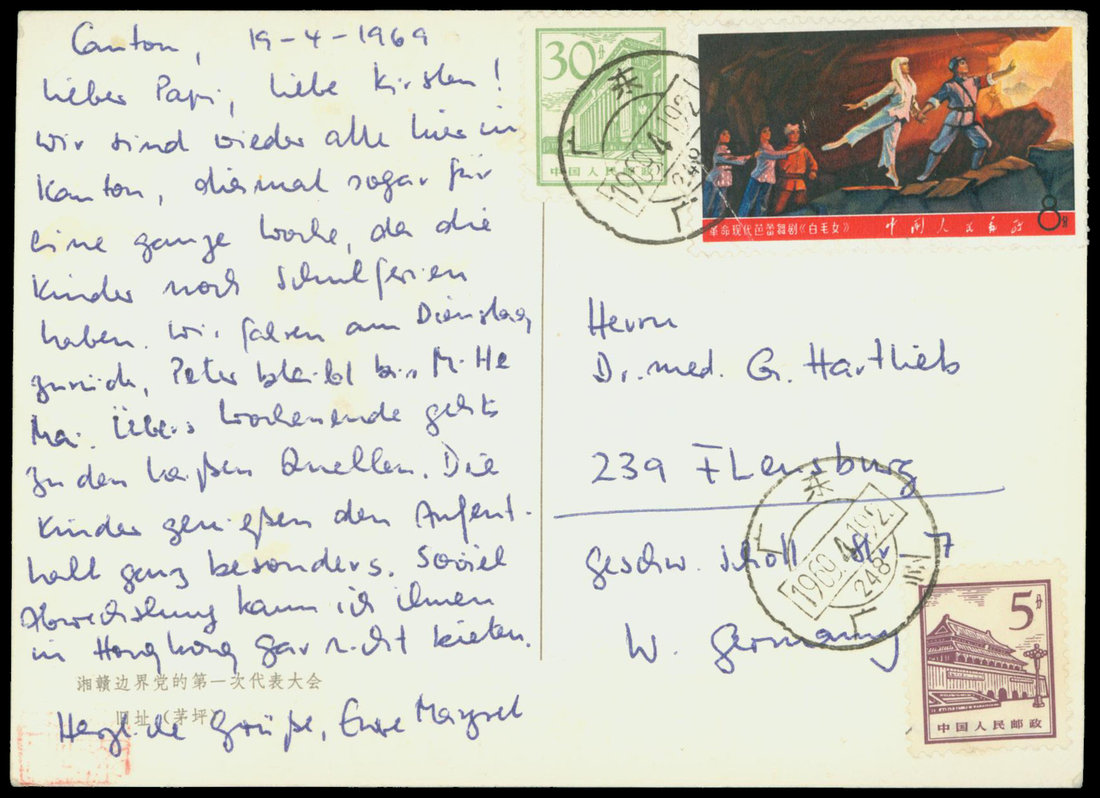 Canton, 19-4-1969
Lieber Papi, liebe Kirsten!
Wir sind wieder alle hier in
Kanton, diesmal sogar für
eine ganze Woche, da die
Kinder noch Schulferien
haben. Wir fahren am Dienstag
zurück, Peter bleibt bis
Mai. Übers Wochenende geht's
zu den heißen Quellen. Die
Kinder genießen den Aufent-
halt ganz besonders. Soviel
Abwechslung kann ich ihnen
in Hongkong gar nicht bieten.
湘赣边界党的第一次代表大会
旧址(茅坪)
Herzliche Grüße, Eure
30分
中国人民邮政
革命现代芭蕾舞剧《白毛女》
中国人民邮政
8分
广东
1969.4.19
248
广
Herrn
Dr. med. G. Hartlieb
239 Flensburg
Geschw. Scholl Str. 7
W. Germany
广东
1969.4.19
248
广州
5分
中国人民邮政